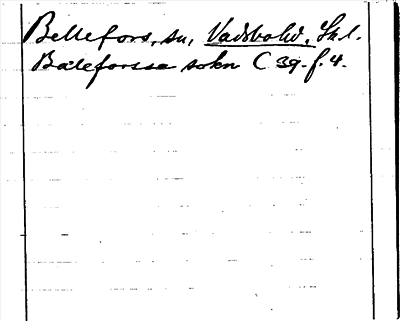 Bellefors, sn, Vadsbo hd, Sk l.
Bæleforssa sokn C 39. f. 4.